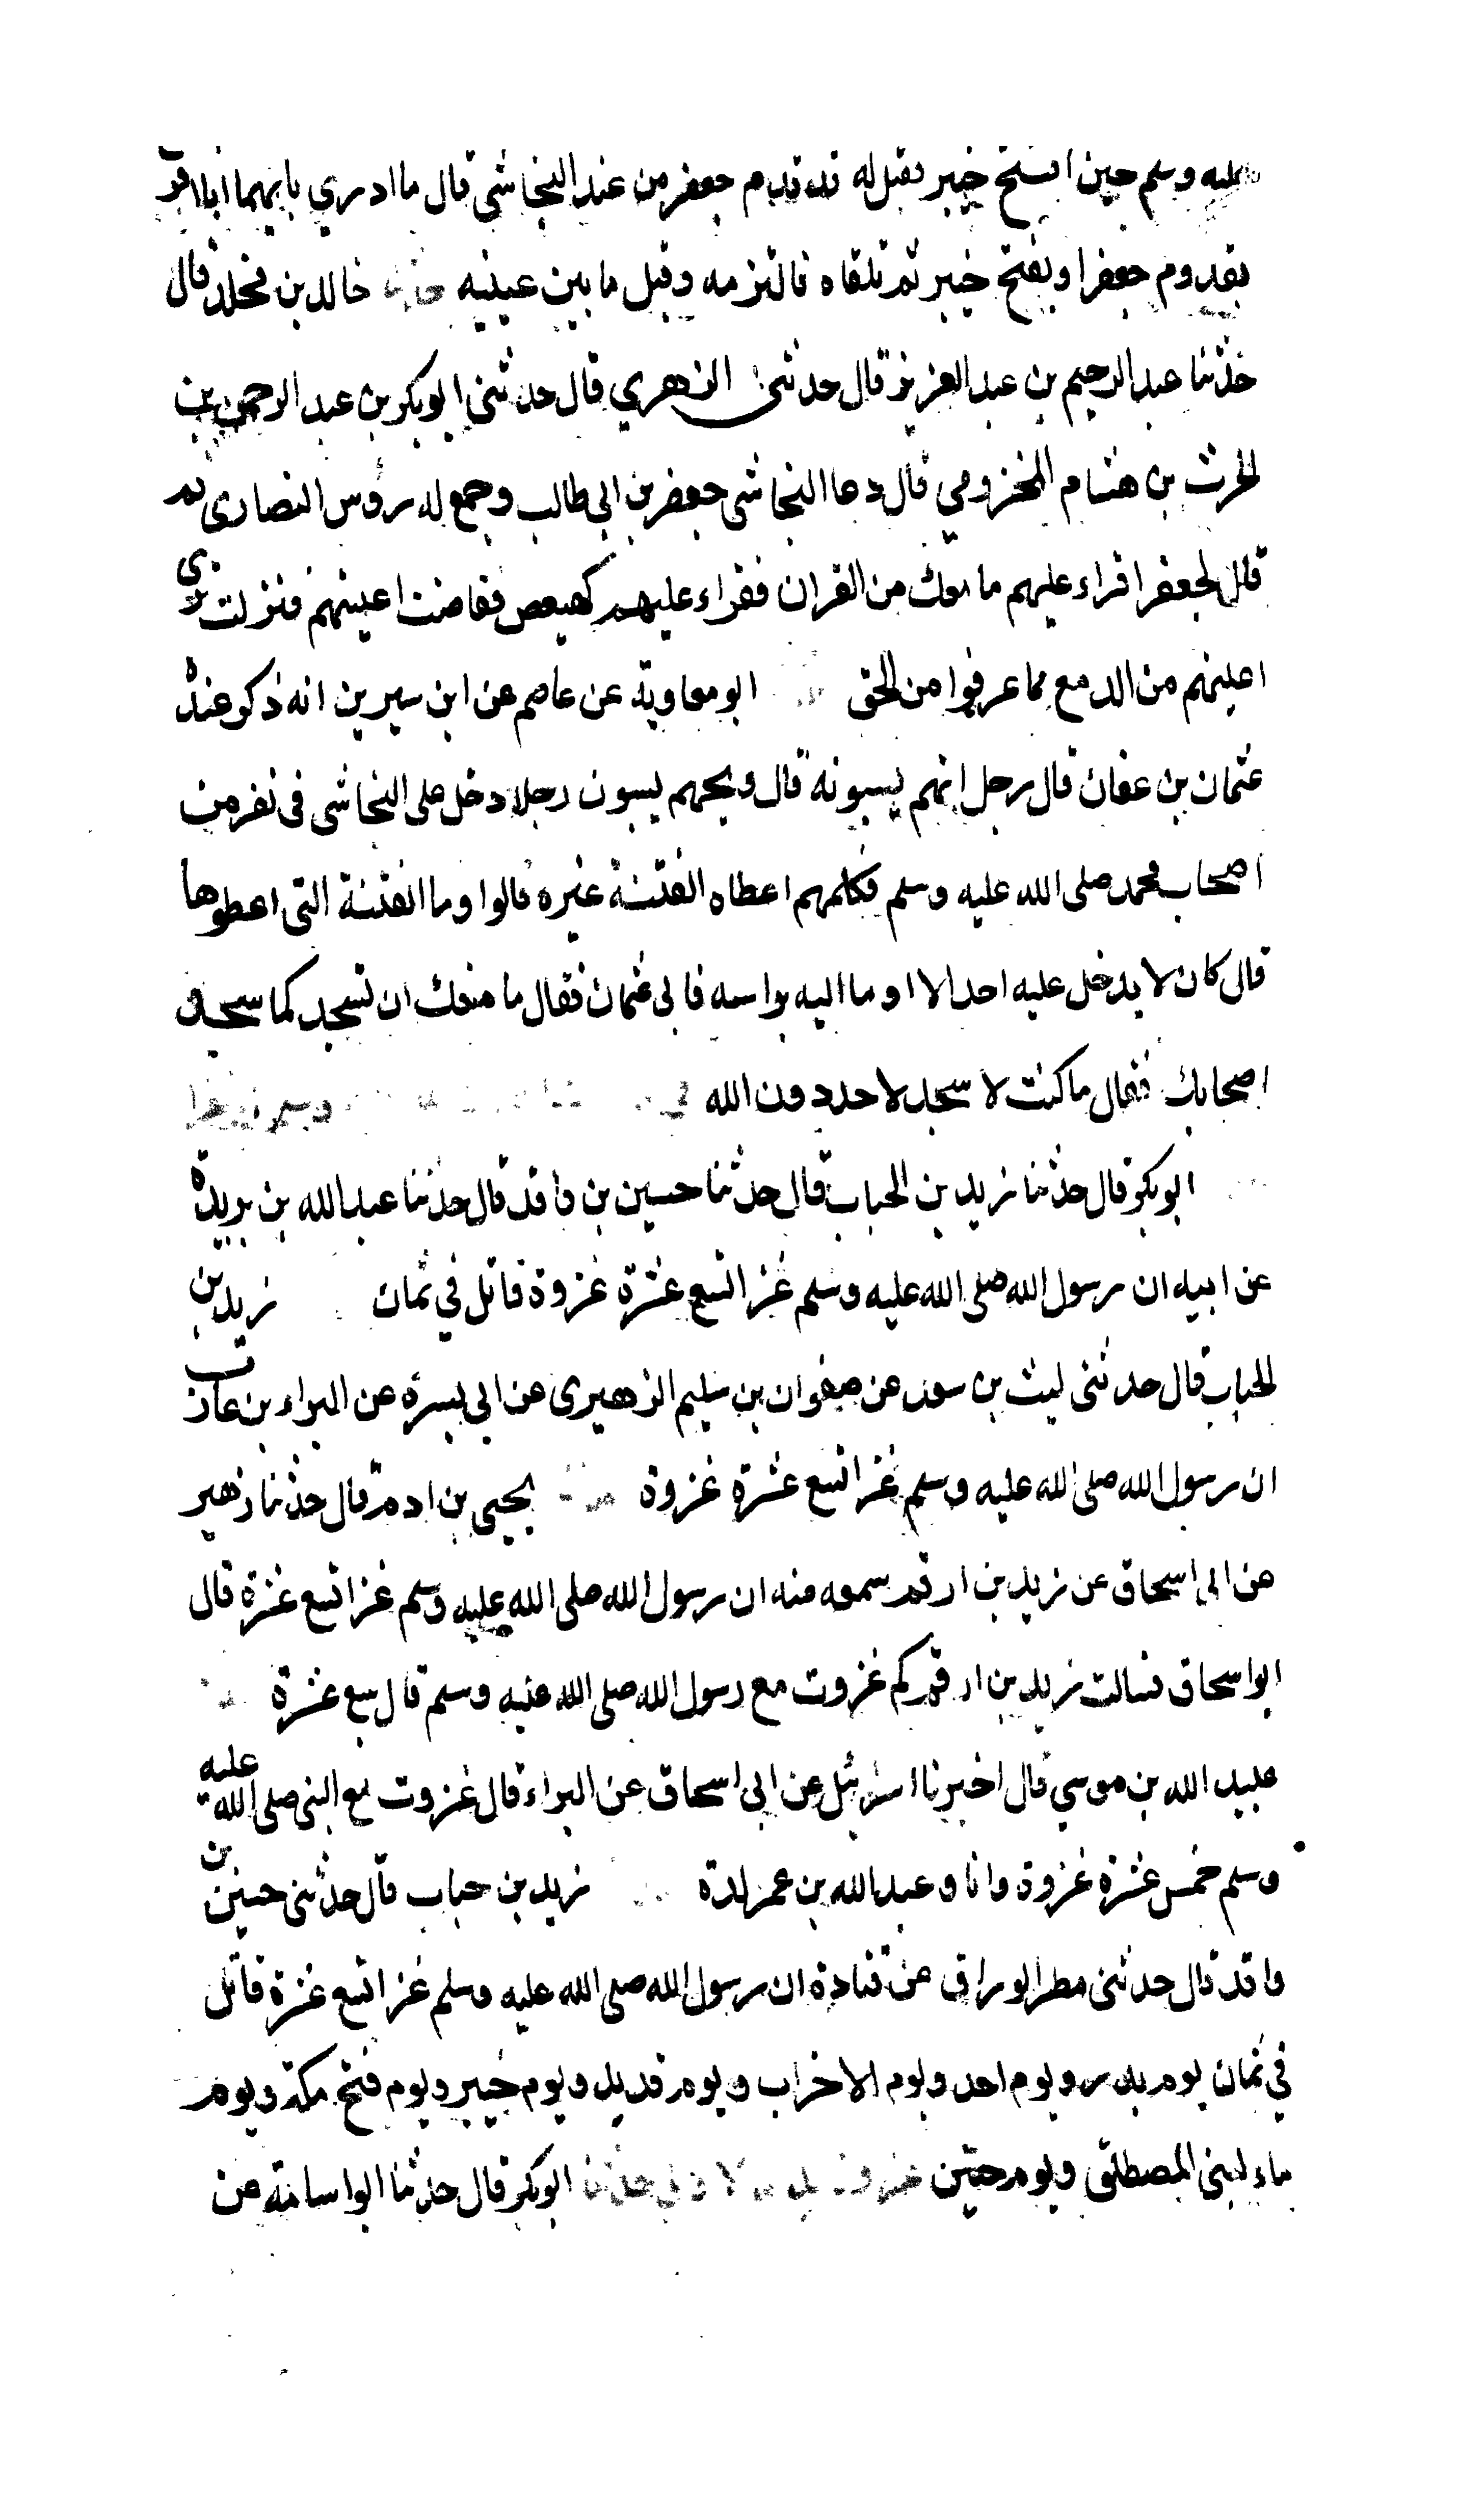 عليه وسلم حين افتتح خيبر فقيل له قد قدم جعفر من عند النجاشي قال ما ادري بايهما انا افرح
بقدوم جعفر او بفتح خيبر ثم تلقاه فالتزمه وقبل ما بين عينيه حدثنا خالد بن مخلد قال
حدثنا عبد الرحيم بن عبد العزيز قال حدثني الزهري قال حدثني ابو بكر بن عبد الرحمن بن
الحرث بن هشام المخزومي قال دعا النجاشي جعفر بن ابي طالب وجمع له رؤس النصارى ثم
قال لجعفر اقراء عليهم ما معك من القران فقراء عليهم كهيعص ففاضت اعينهم فنزلت ترى
اعينهم من الدمع مما عرفوا من الحق ابو معاوية عن عاصم عن ابن سيرين انه ذكر عنده
عثمان بن عفان قال رجل انهم يسبونه قال ويحهم يسبون رجلا دخل على النجاشي في نفر من
اصحاب محمد صلى الله عليه وسلم فكلهم اعطاه الفتنة غيره قالوا وما الفتنة التي اعطوها
قال كان لا يدخل عليه احد الا اوما اليه براسه فابى عثمان فقال ما منعك ان تسجد كما سجد
اصحابك فقال ما كنت لاسجد لاحد دون الله
ابو بكر قال حدثنا زيد بن الحباب قال حدثنا حسين بن واقد قال حدثنا عبد الله بن بريدة
عن ابيه ان رسول الله صلى الله عليه وسلم غزا تسع عشرة غزوة قاتل في ثمان زيد بن
الحباب قال حدثني ليث بن سعد عن صفوان بن سليم الزهيري عن ابي بسرة عن البراء بن عازب
ان رسول الله صلى الله عليه وسلم غزا تسع عشرة غزوة يحيى بن ادم قال حدثنا زهير
عن ابي اسحاق عن زيد بن ارقم سمعه منه ان رسول الله صلى الله عليه وسلم غزا تسع عشرة قال
ابو اسحاق فسالت زيد بن ارقم كم غزوت مع رسول الله صلى الله عليه وسلم قال سبع عشرة
عبيد الله بن موسى قال اخبرنا اسرائيل عن ابي اسحاق عن البراء قال غزوت مع النبي صلى الله عليه
وسلم خمس عشرة غزوة وانا وعبد الله بن عمر لدة زيد بن حباب قال حدثني حسين بن
واقد قال حدثني مطر الوراق عن قتادة ان رسول الله صلى الله عليه وسلم غزا تسع عشرة قاتل
في ثمان يوم بدر ويوم احد ويوم الاحزاب ويوم قديد ويوم خيبر ويوم فتح مكة ويوم
ماء لبني المصطلق ويوم حنين حدثنا ابو بكر قال حدثنا ابو اسامة عن